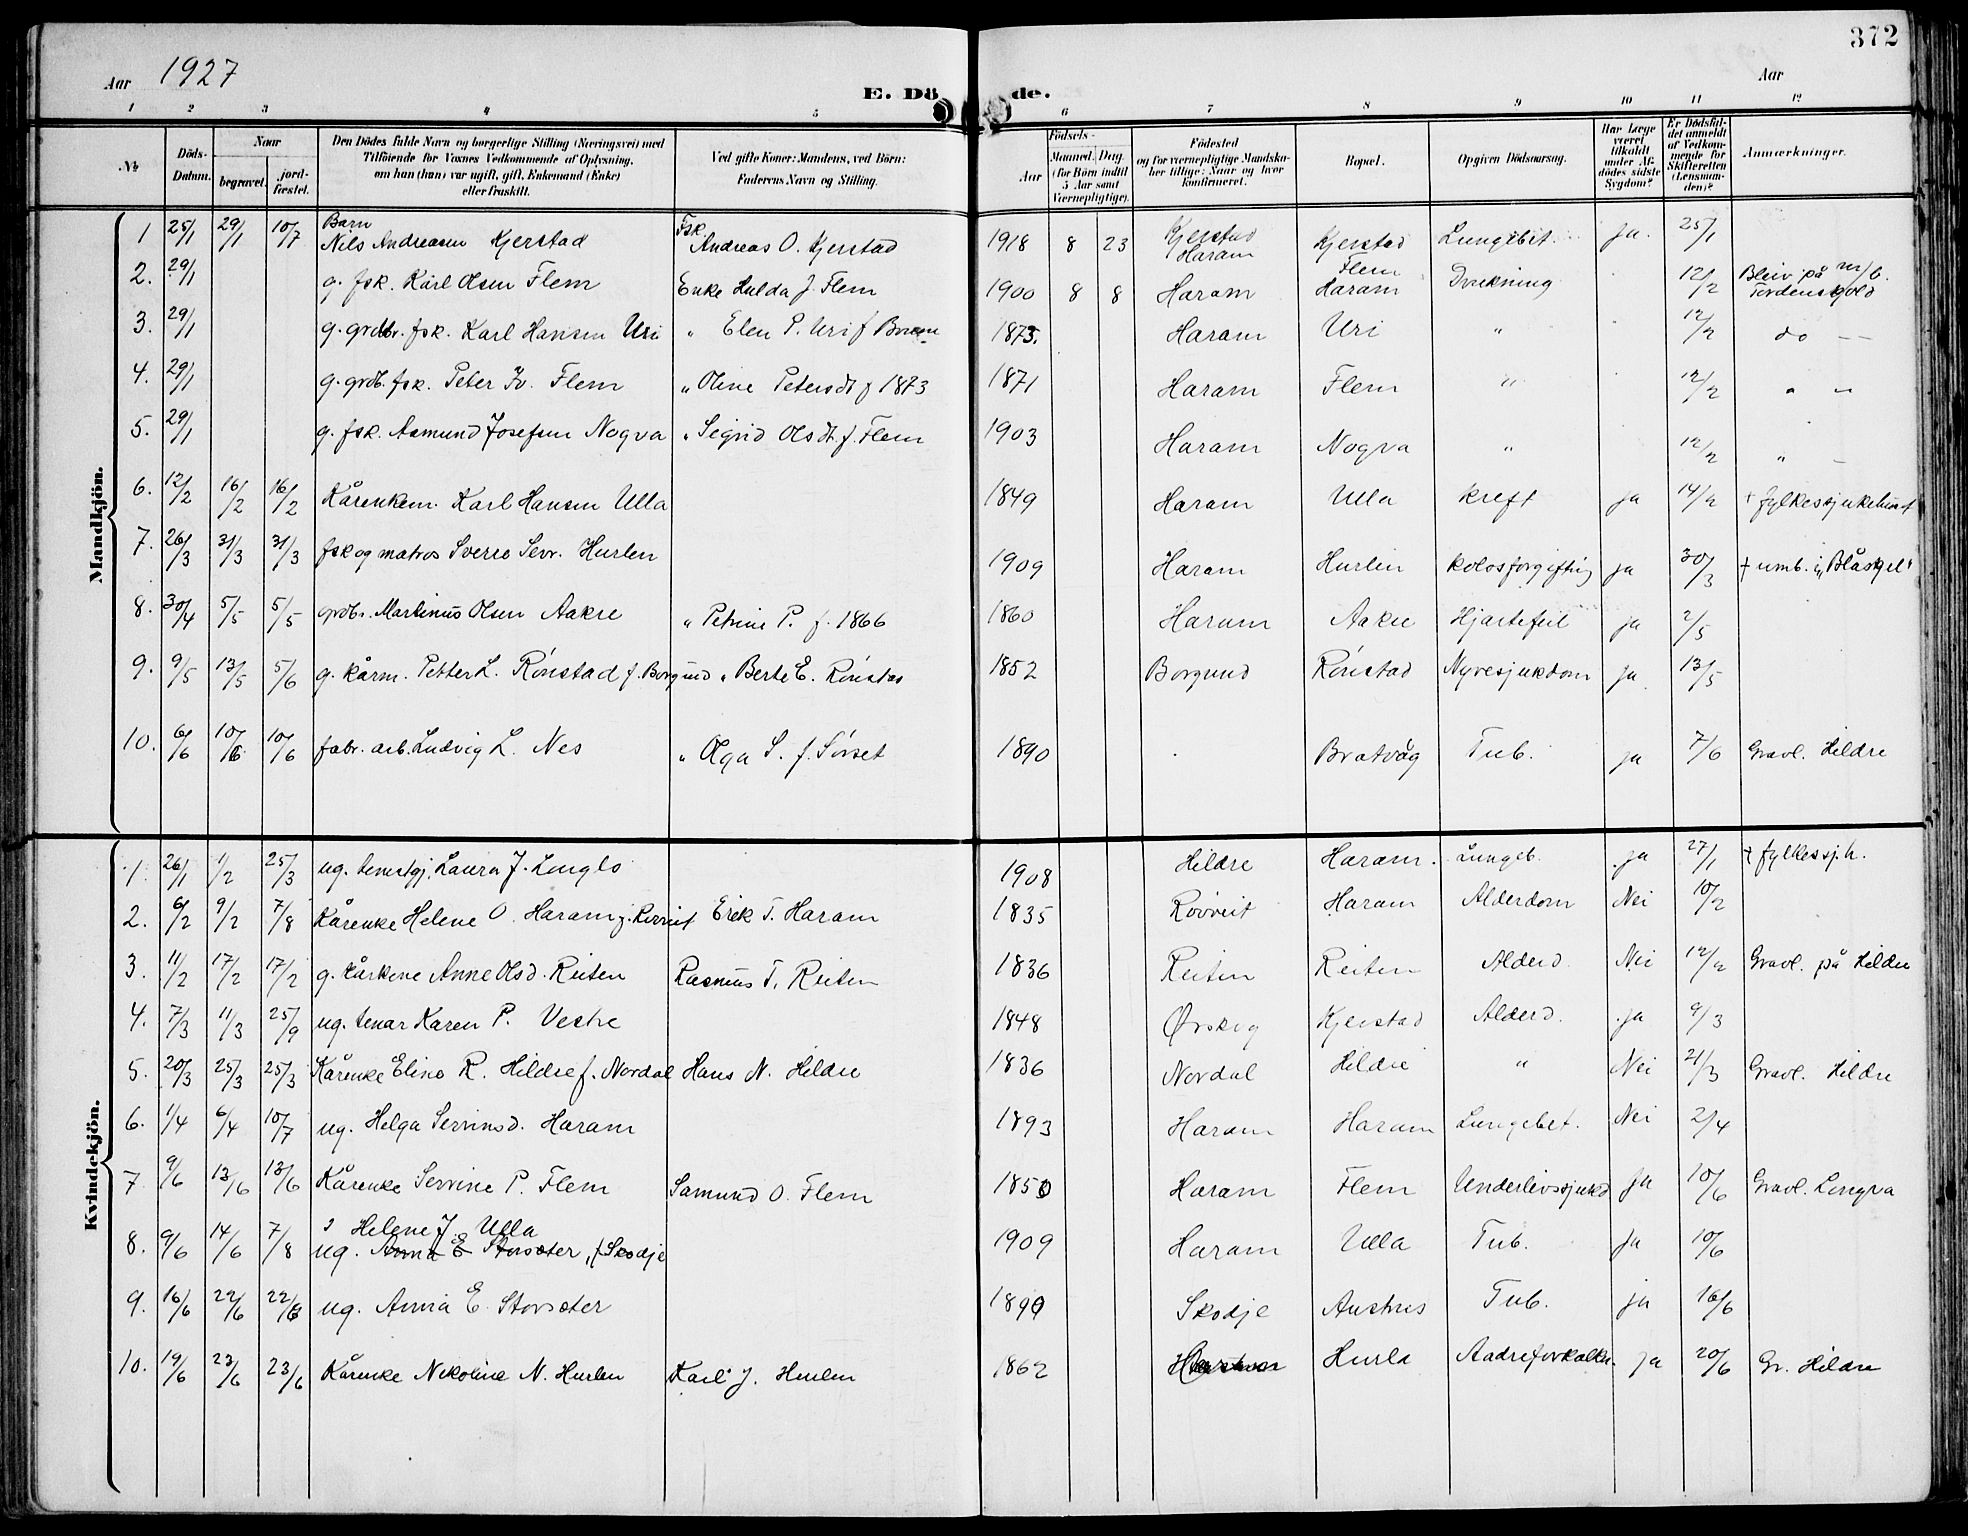 372
Aar 1927
Aar
E. Dö de.
1 2 3 4 5 6 7 8 9 10 11 12
No. Döds-Datum. Naar begravet. jord-fæstet.
Den Dödes fulde Navn og borgerlige Stilling (Næringsvei) med
Tilföiende for Voxnes Vedkommende af Oplysning,
om han (hun) var ugift, gift, Enkemand (Enke)
eller fraskilt.
Ved gifte Koner: Mandens, ved Börn:
Faderens Navn og Stilling.
Födsels-
Aar Maaned. Dag.
(for Börn indtil
5 Aar samt
Værnepligtige).
Födested
og for værnepligtige Mandska-
ber tillige: Naar og hvor
konfirmeret.
Bopæl.
Opgiven Dödsaarsag.
Har Læge
været
tilkaldt
under Af-
dödes sidste
Sygdom?
Er Dödsfal-
det anmeldt
af Vedkom-
mende for
Skifteretten
(Lensman-
den)?
Anmærkninger.
Mandkjön.
1 25/1 29/1 10/7 Barn Nils Andreasen Kjerstad Fsk. Andreas O. Kjerstad 1918 8 23 Kjerstad Haram Kjerstad Lungebet. ja. 25/1
2. 29/1 g. fsk. Karl Olsen Flem Enke Hulda J. Flem 1900 8 8 Haram Flem Haram Drukning 12/2 Bleiv på m/b. Tordenskjold
3. 29/1 g. grdbr. fsk. Karl Hansen Uri " Elen P. Uri f 1873. Haram Uri " 12/2 do —
4. 29/1 g. grdb. fsk. Peter Flem " Oline Petersdt f 1873 1871 Haram Flem " 12/2 " —
5. 29/1 g. fsk. Aamund Josefsen Nogva " Segrid Olsdt. f. Flem 1903 Haram Nogva " 12/2 " —
6. 12/2 16/2 16/2 Kårenkem. Karl Hansen Ulla 1849 Haram Ulla kreft ja 14/2 + fylkessjukehuset
7. 26/3 31/3 31/3 fsk og matros Sverre Sevr. Hurlen 1909 Haram Hurlen kolosforgiftnig ja 30/3 + umb. i „Blåskjel"
8. 30/4 5/5 5/5 grdbr. Martinus Olsen Aakre " Petrine P. f. 1866 1860 Haram Aakre Hjartefeil ja 2/5
9. 9/5 13/5 5/6 g. kårm. Petter L. Rönstad f. Borgund " Berte E. Rönstad 1852 Borgund Rönstad Nyresjukdom ja. 13/5
10. 6/6 10/6 10/6 fabr. arb. Ludvig L. Nes " Olga S. f. Sörset 1890 Bratvåg Tub. ja 7/6 Gravl. Hildre
Kvindekjön.
1. 26/1 1/2 25/3 ug. tenestgj. Laura J. Longlo 1908 Hildre Haram. Lungeb. ja 27/1 + fylkessj.h.
2. 6/2 9/2 7/8 Kårenke Helene O. Haram Erek T. Haram 1835 Rovveit Haram Alderdom Nei 10/2
3. 11/2 17/2 17/2 g. kårkone Anne Olsd. Reiten Rasmus T. Reiten 1836 Reiten Reiten Alderd. Nei 12/2 Gravl. på Hildre
4. 7/3 11/3 25/9 ug. tenar Karen P. Vestre 1848 Ørskog Kjerstad Alderd. ja 9/3
5. 20/3 25/3 25/3 Kårenke Eline R. Hildre f. Nordal Hans N. Hildre 1836 Nordal Hildre " Nei 21/3 Gravl. Hildre
6. 1/4 6/4 10/7 ug. Helga Severinsd. Haram 1893 Haram Haram Lungebet. Nei 2/4
7 9/6 13/6 13/6 Kårenke Serrine P. Flem Samund O. Flem 1850 Haram Flem Underlivssjukd ja 10/6 Gravl. Longva
8. 9/6 14/6 7/8 ug. Helene J. Ulla Anna E Storsæter, f Skodje 1909 Haram Ulla Tub. ja 10/6
9. 16/6 22/6 22/6 ug. Anna E. Storsæter 1890 Skodje Austnes Tub. ja 16/6
10. 19/6 23/6 23/6 Kårenke Nekoline N. Hurlen Karl J. Hurlen 1862 Hurla Aadreforkalkn. ja 20/6 Gr. Hildre